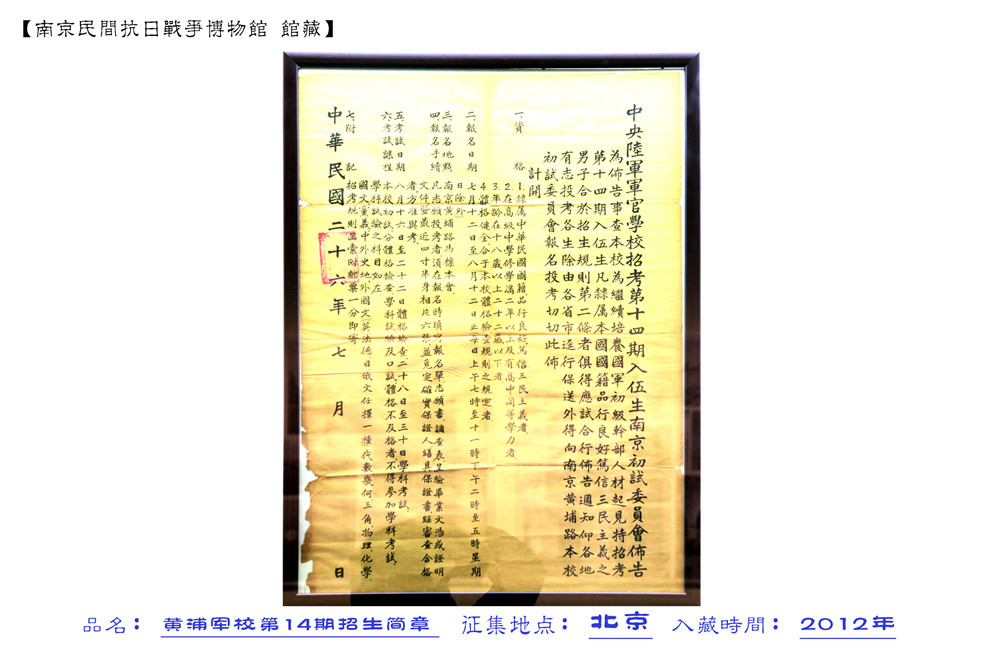 【南京民間抗日戰爭博物館 館藏】
中央陸軍軍官學校招考第十四期入伍生南京初試委員會佈告
為佈告事查本校為繼續培養國軍初級幹部人材起見特招考
第十四期入伍生凡隸属本國國籍品行良好篤信三民主義之
男子合於招生規則第二條者俱得應試合行佈告週知仰各地
有志投考各生除由各省市逕行保送外得向南京黃埔路本校
初試委員會報名投考切切此佈
計開
一、資格
1.隸属中華民國國籍品行良好篤信三民主義者
2.在高級中學修學滿二年以上及有高中同等學力者
3.年齡在十八歲以上二十二歲以下者
4.體格健全合于本校體格檢查規則之規定者
二、報名日期 七月十二日至八月十二日止每日上午七時至十一時下午二時至五時星期
日除外
三、報名地點 南京黃埔路馬標本會
四、報名手續 凡志願投考者須在報名時填寫報名單志願書調查表呈驗畢業文憑或證明
文件暨最近四寸半身相片六張並覓定確實保證人繕具保證書經審查合格
者方准與考
五、考試日期 八月十六日至二十二日體格檢查二十八日至三十日學科考試
六、考試課程 本校初試分體格檢查學科試驗及口試體格不及格者不得參加學科考試
學科試驗之科目如左
國文黨義中外史地外國文(英法德日俄文任擇一種)代數幾何三角物理化學
七、附記 招考規則函索附郵票一分即寄
中華民國二十六年七月 日
品名：黄浦军校第14期招生简章 征集地点：北京 入藏時間：2012年